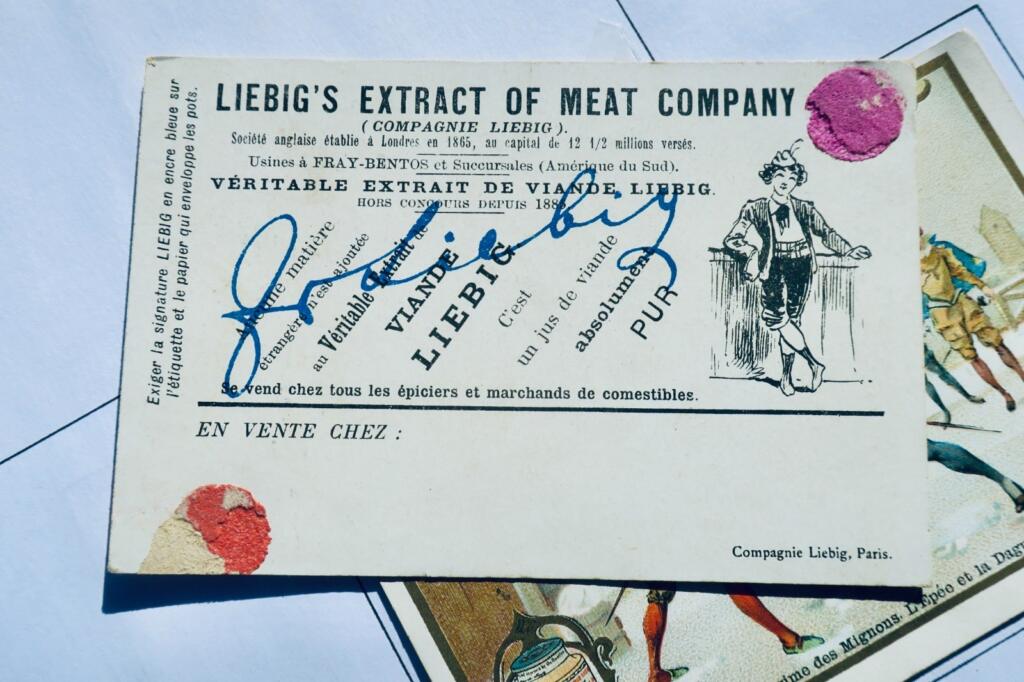 LIEBIG'S EXTRACT OF MEAT COMPANY
(COMPAGNIE LIEBIG).
Société anglaise établie à Londres en 1865, au capital de 12 1/2 millions versés.
Usines à FRAY-BENTOS et Succursales (Amérique du Sud).
VÉRITABLE EXTRAIT DE VIANDE LIEBIG.
HORS CONCOURS DEPUIS
Exiger la signature LIEBIG en encre bleue sur
l'étiquette et le papier qui enveloppe les pots.
Aucune matière
étrangère n'est ajoutée
au Véritable Extrait de
VIANDE
LIEBIG.
C'est
un jus de viande
absolument
PUR
JvLiebig
Se vend chez tous les épiciers et marchands de comestibles.
EN VENTE CHEZ :
Compagnie Liebig, Paris.
des Mignons. L'Épée et la